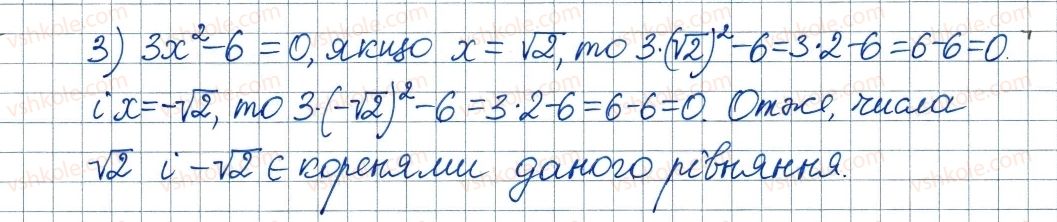 3) 3x²-6=0, якщо x=√2, то 3·(√2)²-6=3·2-6=6-6=0.
і x=-√2, то 3·(-√2)²-6=3·2-6=6-6=0. Отже, числа
√2 і -√2 є коренями даного рівняння.